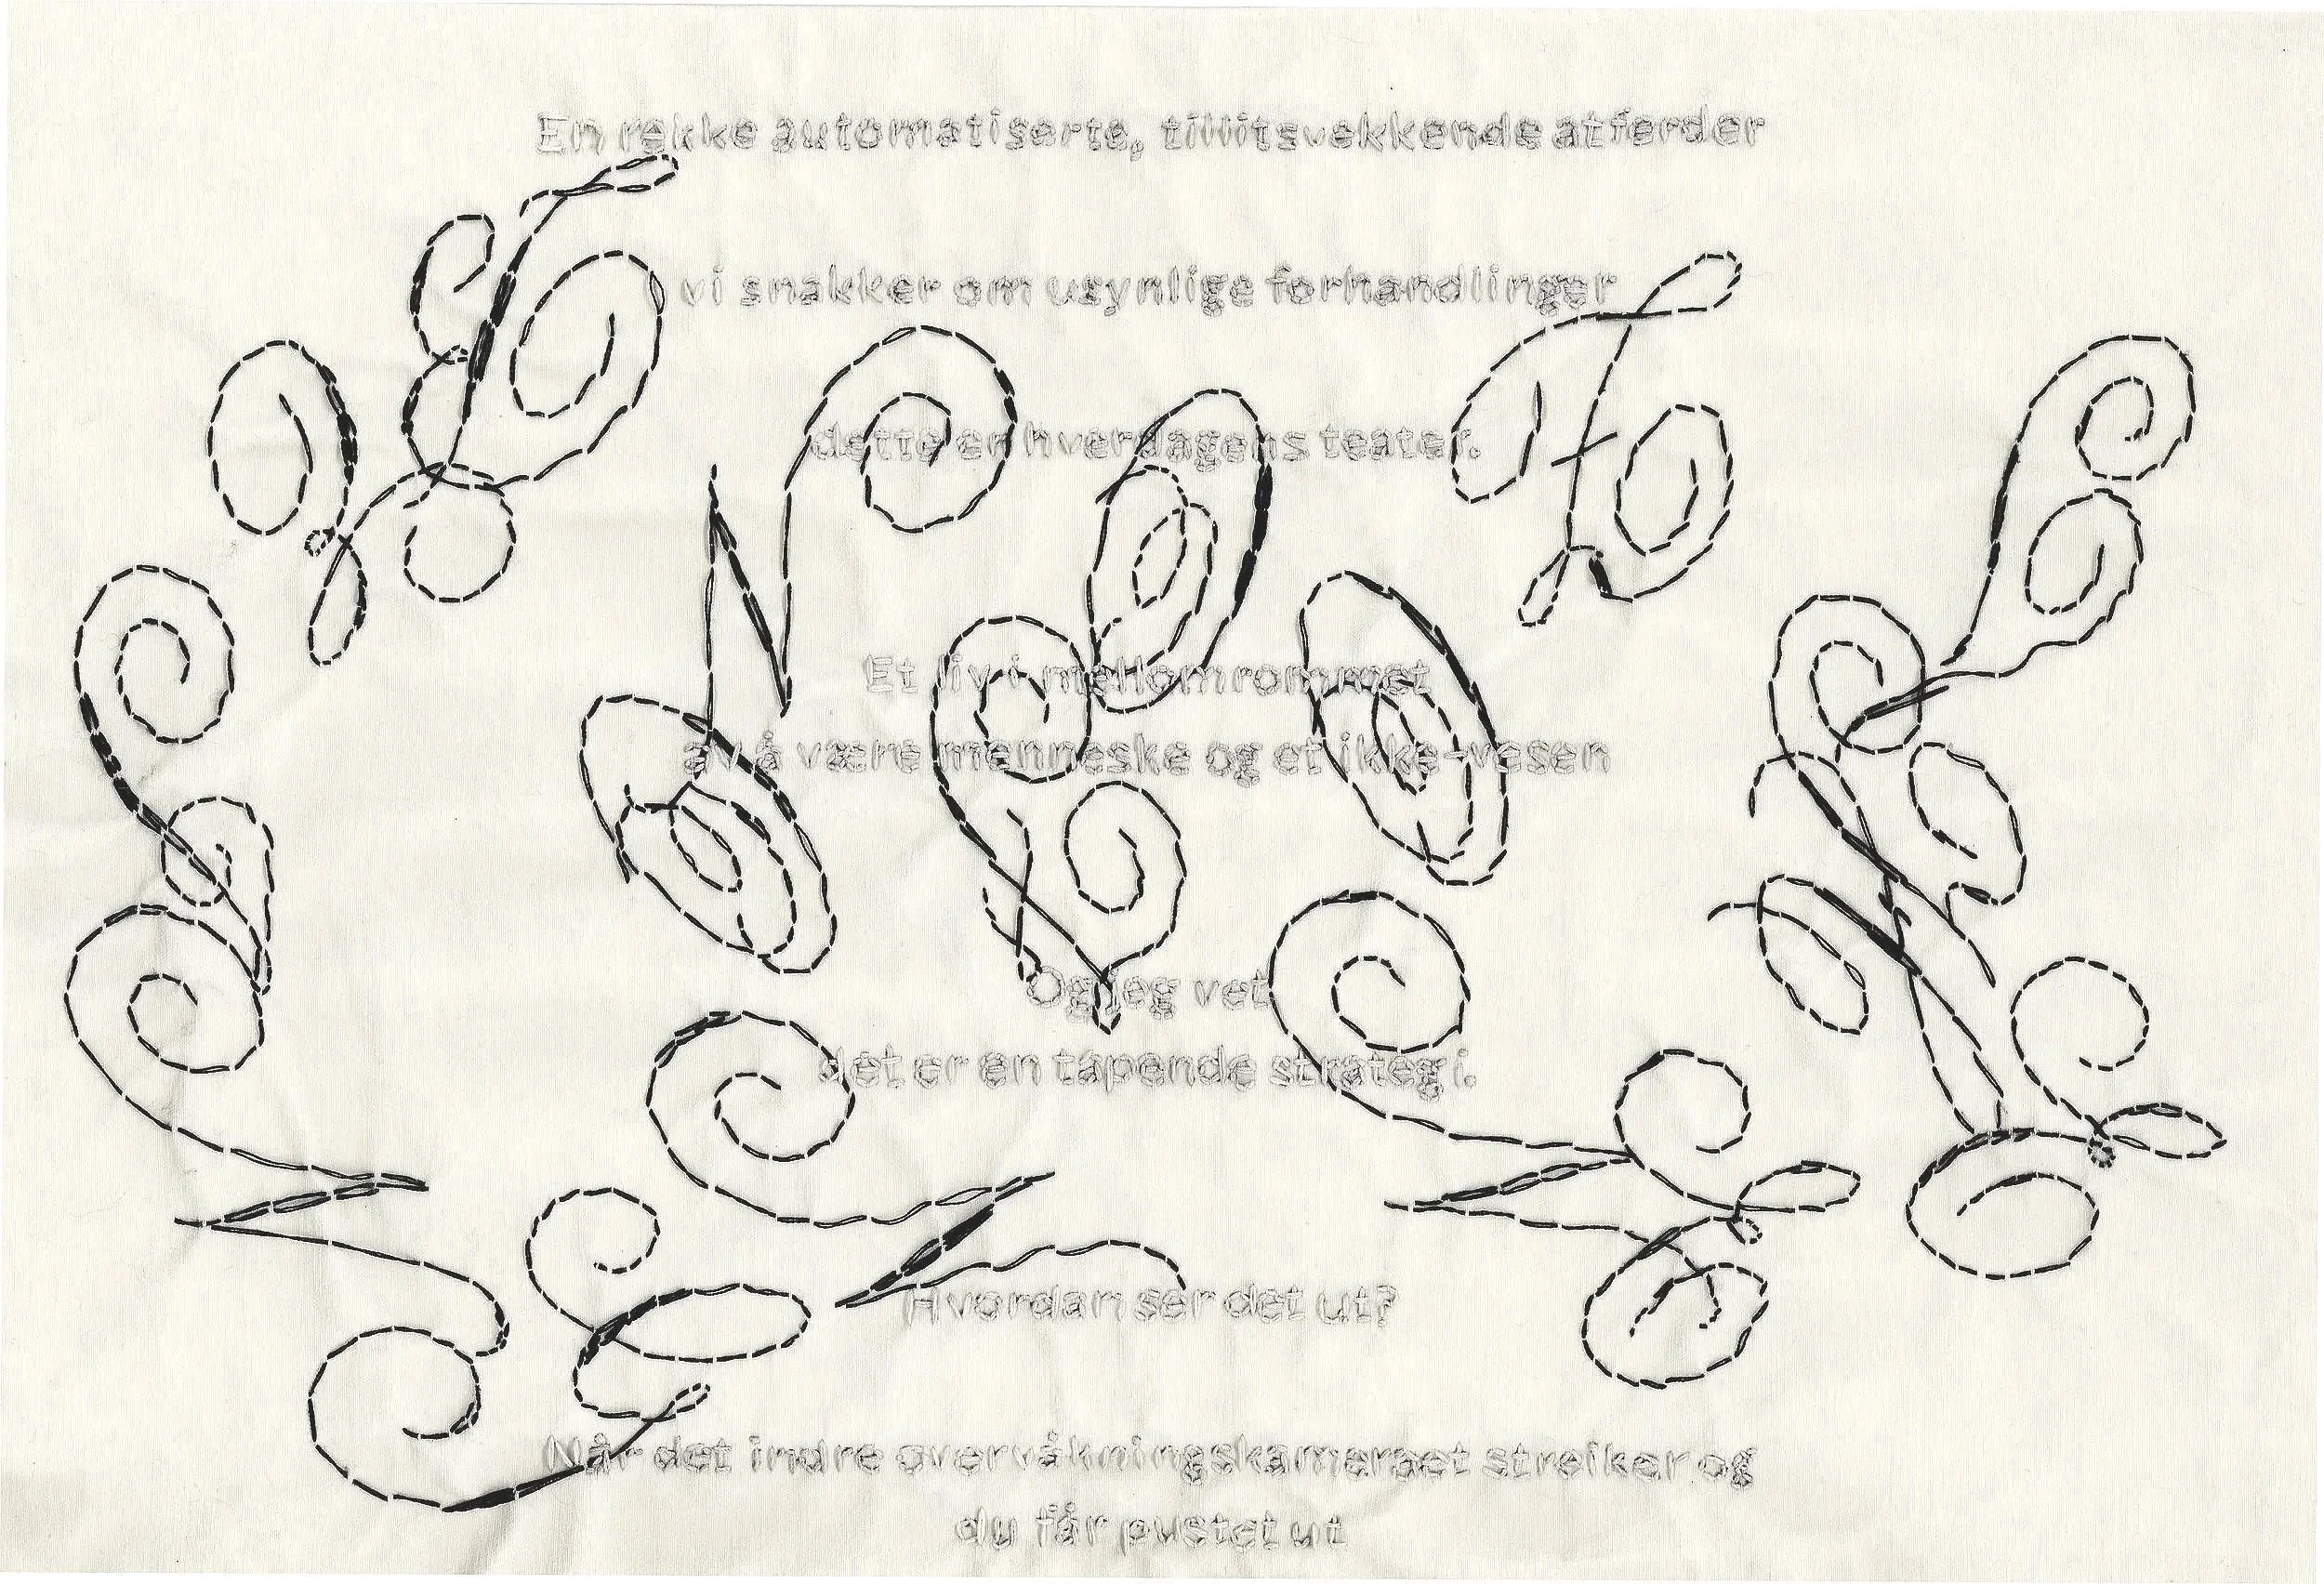 En rekke automatiserte, tillitsvekkende atferder
vi snakker om usynlige forhandlinger
dette er hverdagens teater.
Et liv i mellomrommet
av å være menneske og et ikke-vesen
Og jeg vet
det er en tapende strategi.
Hvordan ser det ut?
Når det indre overvåkningskameraet streiker og
du får pustet ut